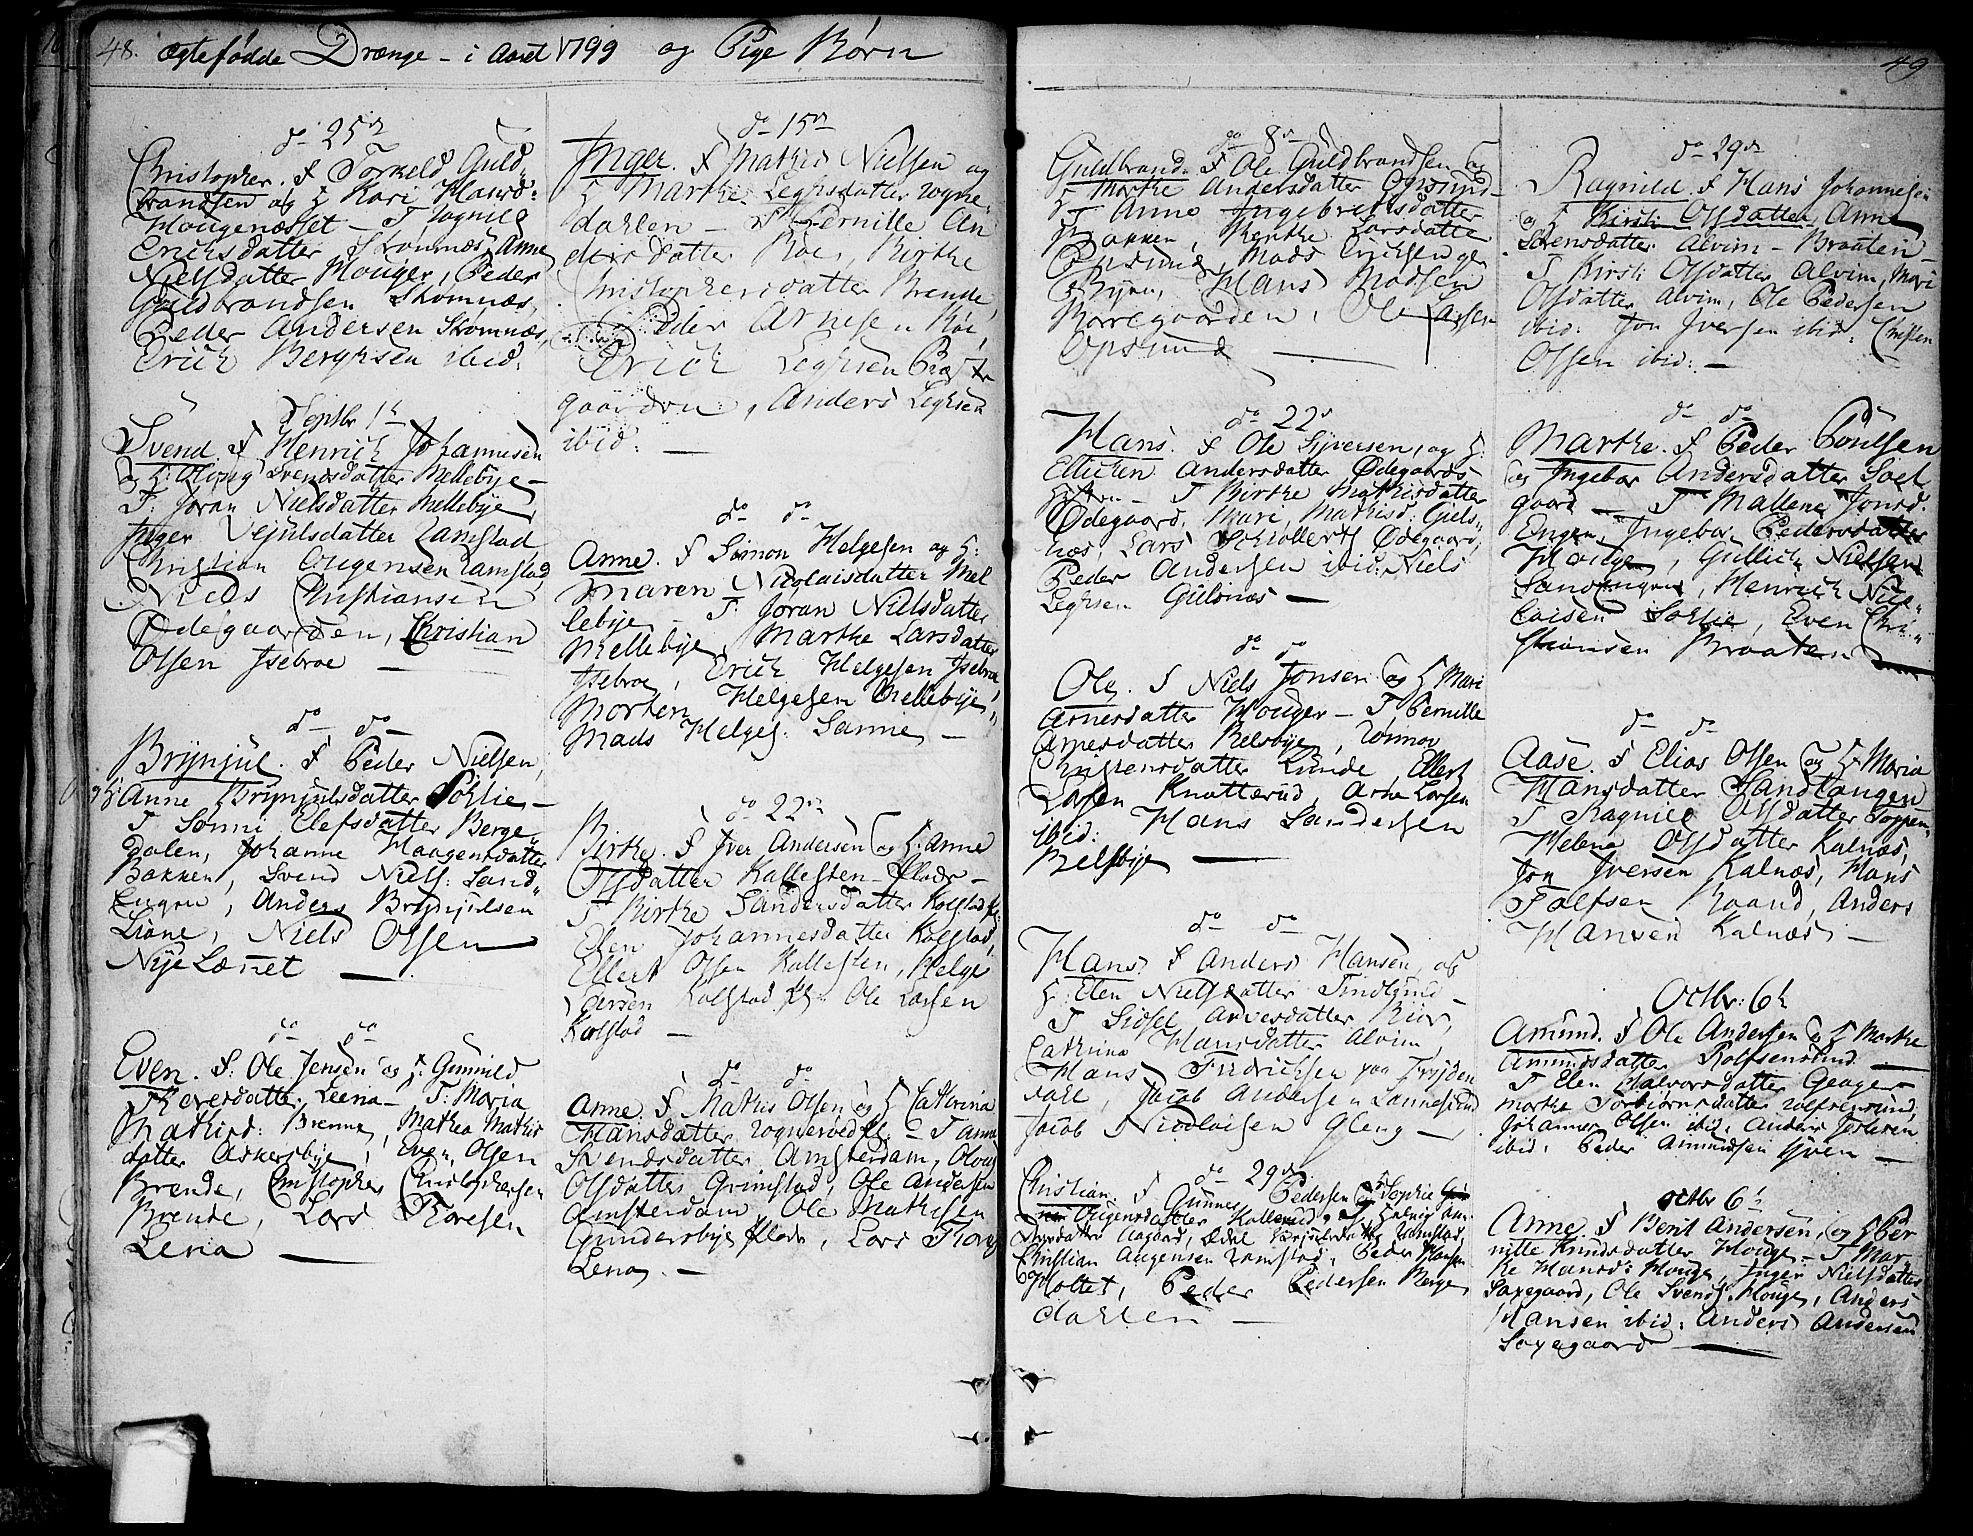 48. ægtefødde Drænge - i Aaret 1799 og Pige Børn
do 25de
Christopher. F Torkeld Guld-
brandsen og H Kari Haard:
Hougenæsset - T Ragnild
Erichsdatter Skomnæs, Anne
Nielsdatter Houger, Peder
Guldbrandsen Skomnæs,
Peder Andersen Skomnæs,
Erich Berghsen ibid:
Septbr 1te
Svend. F Henrich Johannesen
og H: Olug Svensdatter Mellebye -
T. Joran Nielsdatter Mellebye,
Inger Vejulsdatter Lamstad,
Christian Ougensen Lamstad,
Niels Christiansen
Ødegaarden, Christian
Olsen Isebroe -
do do
Brynjul. F Peder Nielsen,
og H Anne Brynjulsdatter Sohlie -
T Sønni Elefsdatter Berge-
dalen, Johanne Haagensdatter
Bakken, Svend Niels: Sand-
Engen, Anders Brynjulsen
Liane, Niels Olsen
Nye Lænet -
do do
Even. F: Ole Jensen og H: Gunnild
Thoresdatter Leena - T: Maria
Mathisd: Brenne, Mathea Mathis
datter Askersbye, Even Olsen
Brende, Christopher Christophersen
Brende, Lars Thoresen
Lena -
do 15de
Inger. F Mathis Nielsen og
H Marthe Leghsdatter Rogne-
dahlen - T Pernille An-
dersdatter Roe, Birthe
Christophersdatter Brende,
Peder Arnesen Roe,
Erich Leghsen Præste
gaarden, Anders Leghsen
ibid: -
do do
Anne. F Simon Helgesen og H:
Maren Nicolaisdatter Mel
lebye - T. Joran Nielsdatter
Mellebye, Marthe Larsdatter
Isebroe, Erich Helgesen Isebroe,
Morten Helgesen Mellebye,
Mads Helges: Sannie -
do 22de
Birthe. F Iver Andersen og H: Anne
Olsdatter Kallesten-Plads -
T Birthe Sandersdatter Kolstad pl:
Elen Johannesdatter Kolstad,
Ellert Olsen Kallesten, Helge
Larsen Kolstad pl: Ole Larsen
Kolstad -
do do
Anne. F Mathis Olsen og H Catherina
Hansdatter Rogneved pl: - T Anne
Svendsdatter Amsterdam, Oloug
Olsdatter Grimstad, Ole Andersen
Amsterdam, Ole Mathisen
Gundersbye Plads, Lars Thores
Lena -
49
do 8de
Guldbrand. F Ole Guldbrandsen og
H Marthe Andersdatter Opsund -
T Anne Ingebretsdatter
Bakken, Kenthe Larsdatter
Opsund, Mads Erichsen gen
Byen, Hans Madsen
Norregaarden, Ole Larsen
Opsund -
do 22de
Hans. F Ole Syversen, og H:
Ellichen Andersdatter Ødegaards-
- T Birthe Mathisdatter
Ødegaard, Mari Mathisd: Giels-
næs, Lars Schollert Ødegaard,
Peder Andersen ibid: Niels
Leghsen Gielsnæs -
do do
Ole. F Niels Jonsen og H Mari
Arnesdatter Houger - T Pernille
Arnesdatter Belsbye, Rønnov
Christensdatter Lunde, Ellert
Larsen Knatterud, Arne Larsen
ibid: Hans Sandersen
Belsbye -
do do
Hans F Anders Hansen, og
H: Elen Nielsdatter Tindlund -
T Sidsel Arvesdatter Bier,
Cathrina Hansdatter Alvim,
Hans Fredrichsen paa Fryden
dahl, Jacob Andersen Lannesund
Jacob Nicolaisen Gleng -
do 29de
Christian. F Gunner Pedersen og H Sophie
Ougensdatter Kallerud, T Helvig An-
dersdatter Aagaard, Edel Vejulsdatter Lamstad,
Christian Augensen Lamstad, Peder Hansen
Holtet, Peder Pedersen Berge
dahlen -
do 29de
Ragnild. F Hans Johannesen
og H Kirsti Olsdatter Anne
Sørensdatter Alvim - Braaten -
T Kirsti Olsdatter Alvim, Mari
Olsdatter Alvim, Ole Pedersen
ibid: Jon Iversen ibid: Christen
Olsen ibid: -
do do
Marthe. F Peder Poulsen
og Ingebor Andersdatter Soel
gaard - T Mallene Jonsd.
Engen, Ingebor Pedersdatter
Houge, Gullich Nielsen
Sandengen, Henrich Nico-
laisen Sohlie, Even Chri-
stiansen Braaten -
do do
Aase. F Elias Olsen og H: Maria
Hansdatter Sandtangen
T Ragnild Olsdatter Toppen,
Helena Olsdatter Kalnæs,
Jon Iversen Kalnæs, Hans
Tolfsen Raand, Anders
Hansen Kalnæs -
Octbr: 6te
Amund. F Ole Andersen og H Marthe
Amundsdatter Rolfsensund -
T Elen Halvorsdatter Geager
Marthe Torbiørnsdatter Rolfsensund,
Johannes Olsen ibid: Anders Torstensen
ibid: Peder Amundsen Yven -
Octbr 6te
Anne F Berit Andersen, og H Per-
nille Knudsdatter Houge - T Mar-
the Hansd: Houge, Inger Nielsdatter
Saxegaard, Ole Svends: Houge, Anders
Hansen ibid: Anders Andersen
Saxegaard -